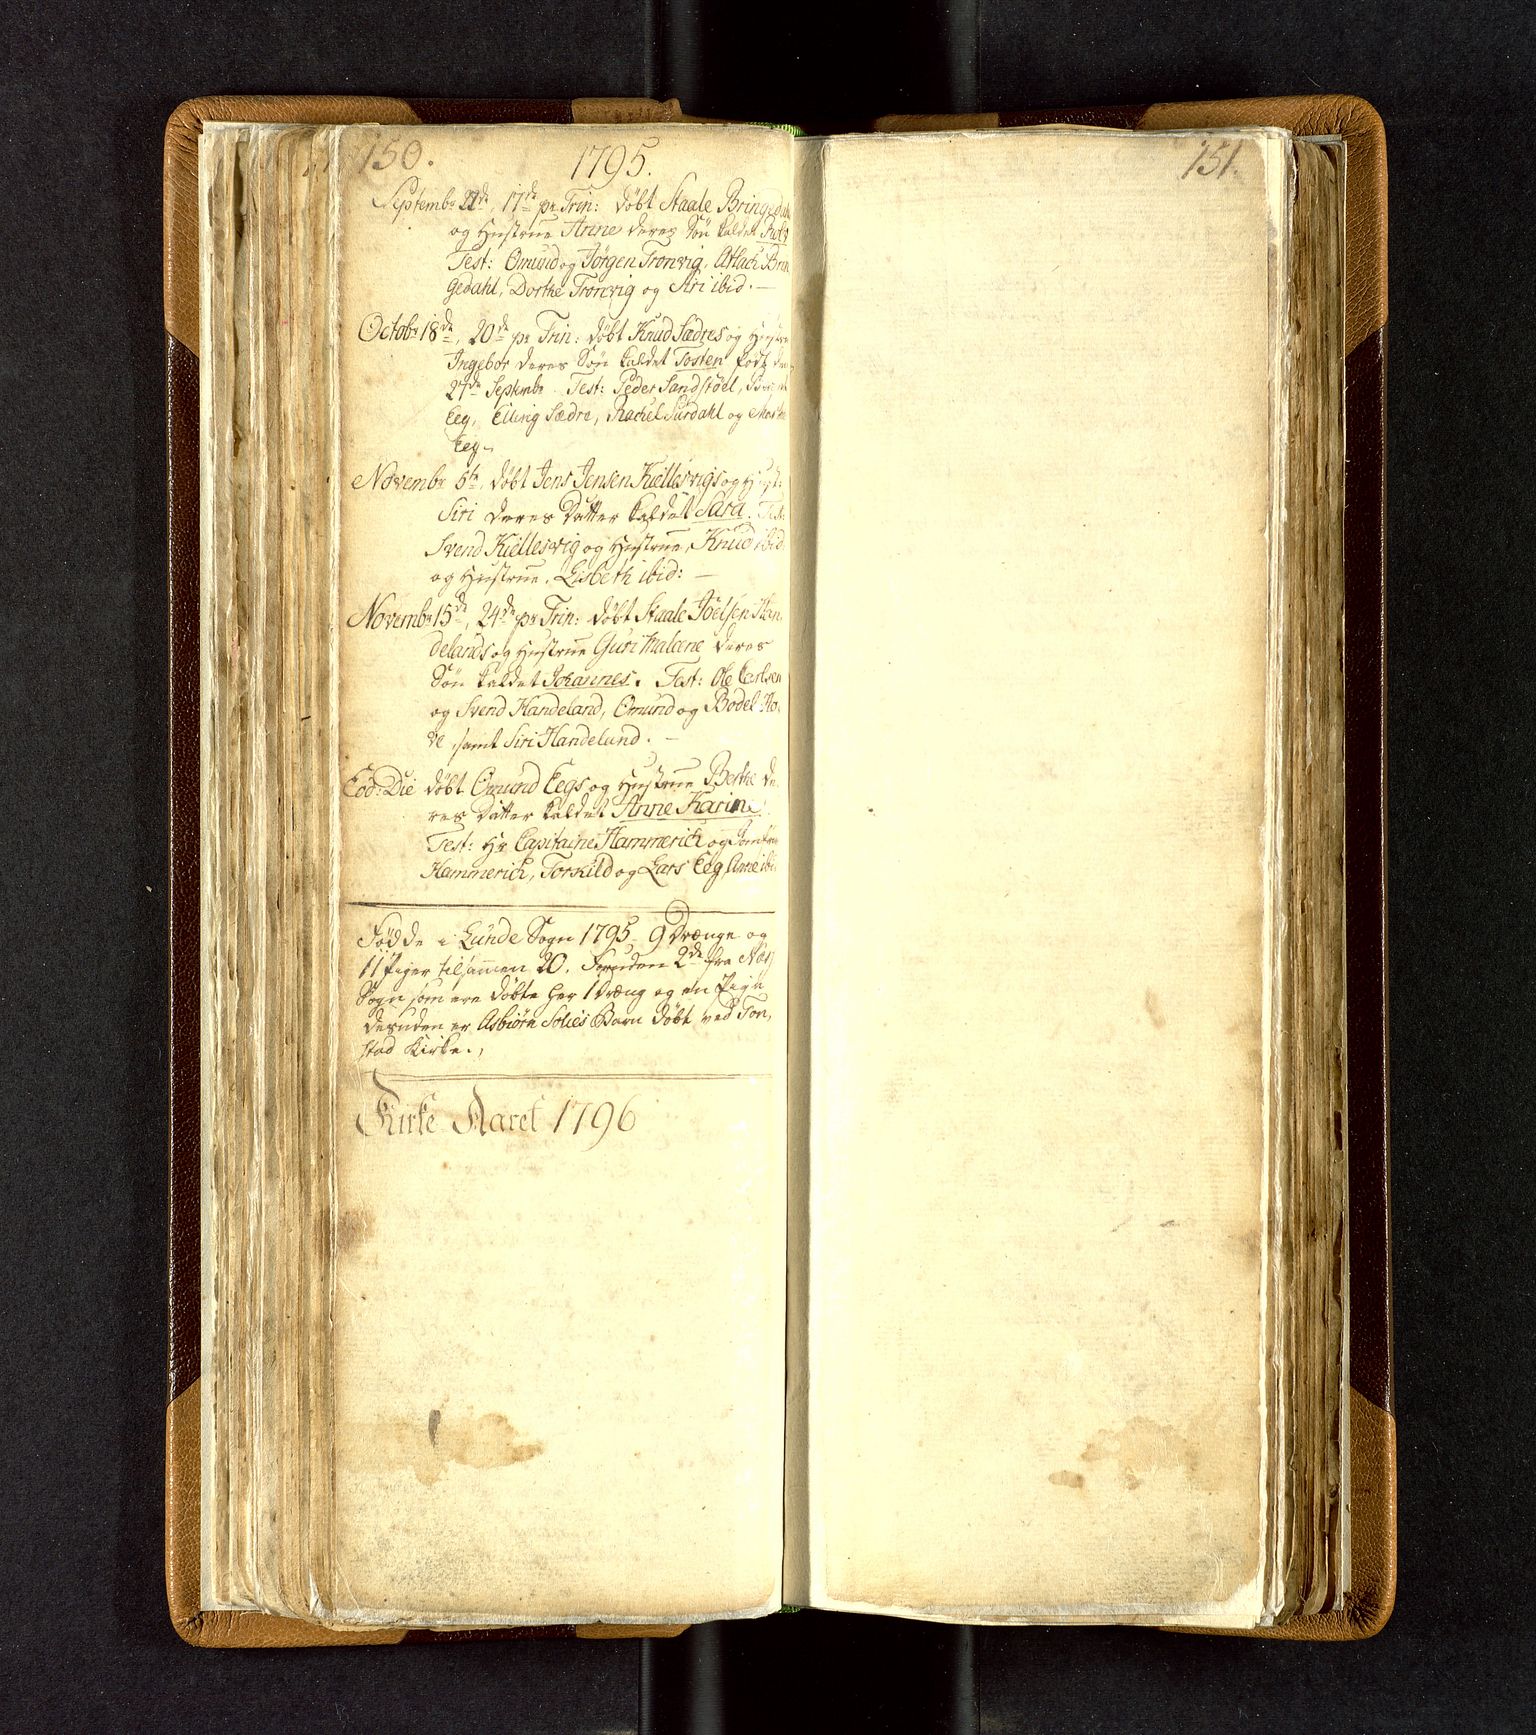 150.
1795.
Septembr 27de, 17de pr Trin: døbt Staale Bringedahl
og Hustrue Anne deres Søn kaldet
Test: Omund og Jørgen Tronvig, Atlach Brin
gedahl, Dorthe Tronvig og Siri ibid. —
Octobr 18de, 20de pr Trin: døbt Knud Sædres og Hustrue
Ingebor deres Søn kaldet Tosten født den
27de Septembr. Test: Peder Sandstøel,
Eeg, Elling Sædre, Rachel Surdahl og
Eeg.
Novembr 5te, døbt Jens Jensen Kiellesvigs og Hust:
Siri deres Datter kaldet Sara. Test:
Svend Kiellesvig og Hustrue, Knud ibid:
og Hustrue, Lisbeth ibid: —
Novembr 15de, 24de pr Trin: døbt Staale Joelsen Han,
delands og Hustrue Guri Malene deres
Søn kaldet Johannes. Test: Ole Carlsen
og Svend Handeland, Omund og Bodel Ho,
ve, samt Siri Handeland. —
Eod: Die døbt Omund Eegs og Hustrue Berthe de,
res Datter kaldet Anne Karine.
Test: Hr Capitaine Hammerich og Jomfrue
Hammerich, Torkild og Lars Eeg, Anne ibid
Fødde i Lunde Sogn 1795 9 Drænge og
11 Piger tilsammen 20. Foruden 2de fra Næs
Sogn som ere døbte her 1 Dræng og en Pige
desuden er Asbiørn Solies Barn døbt ved Ton,
stad Kirke.,
Kirke Aaret 1796
151.